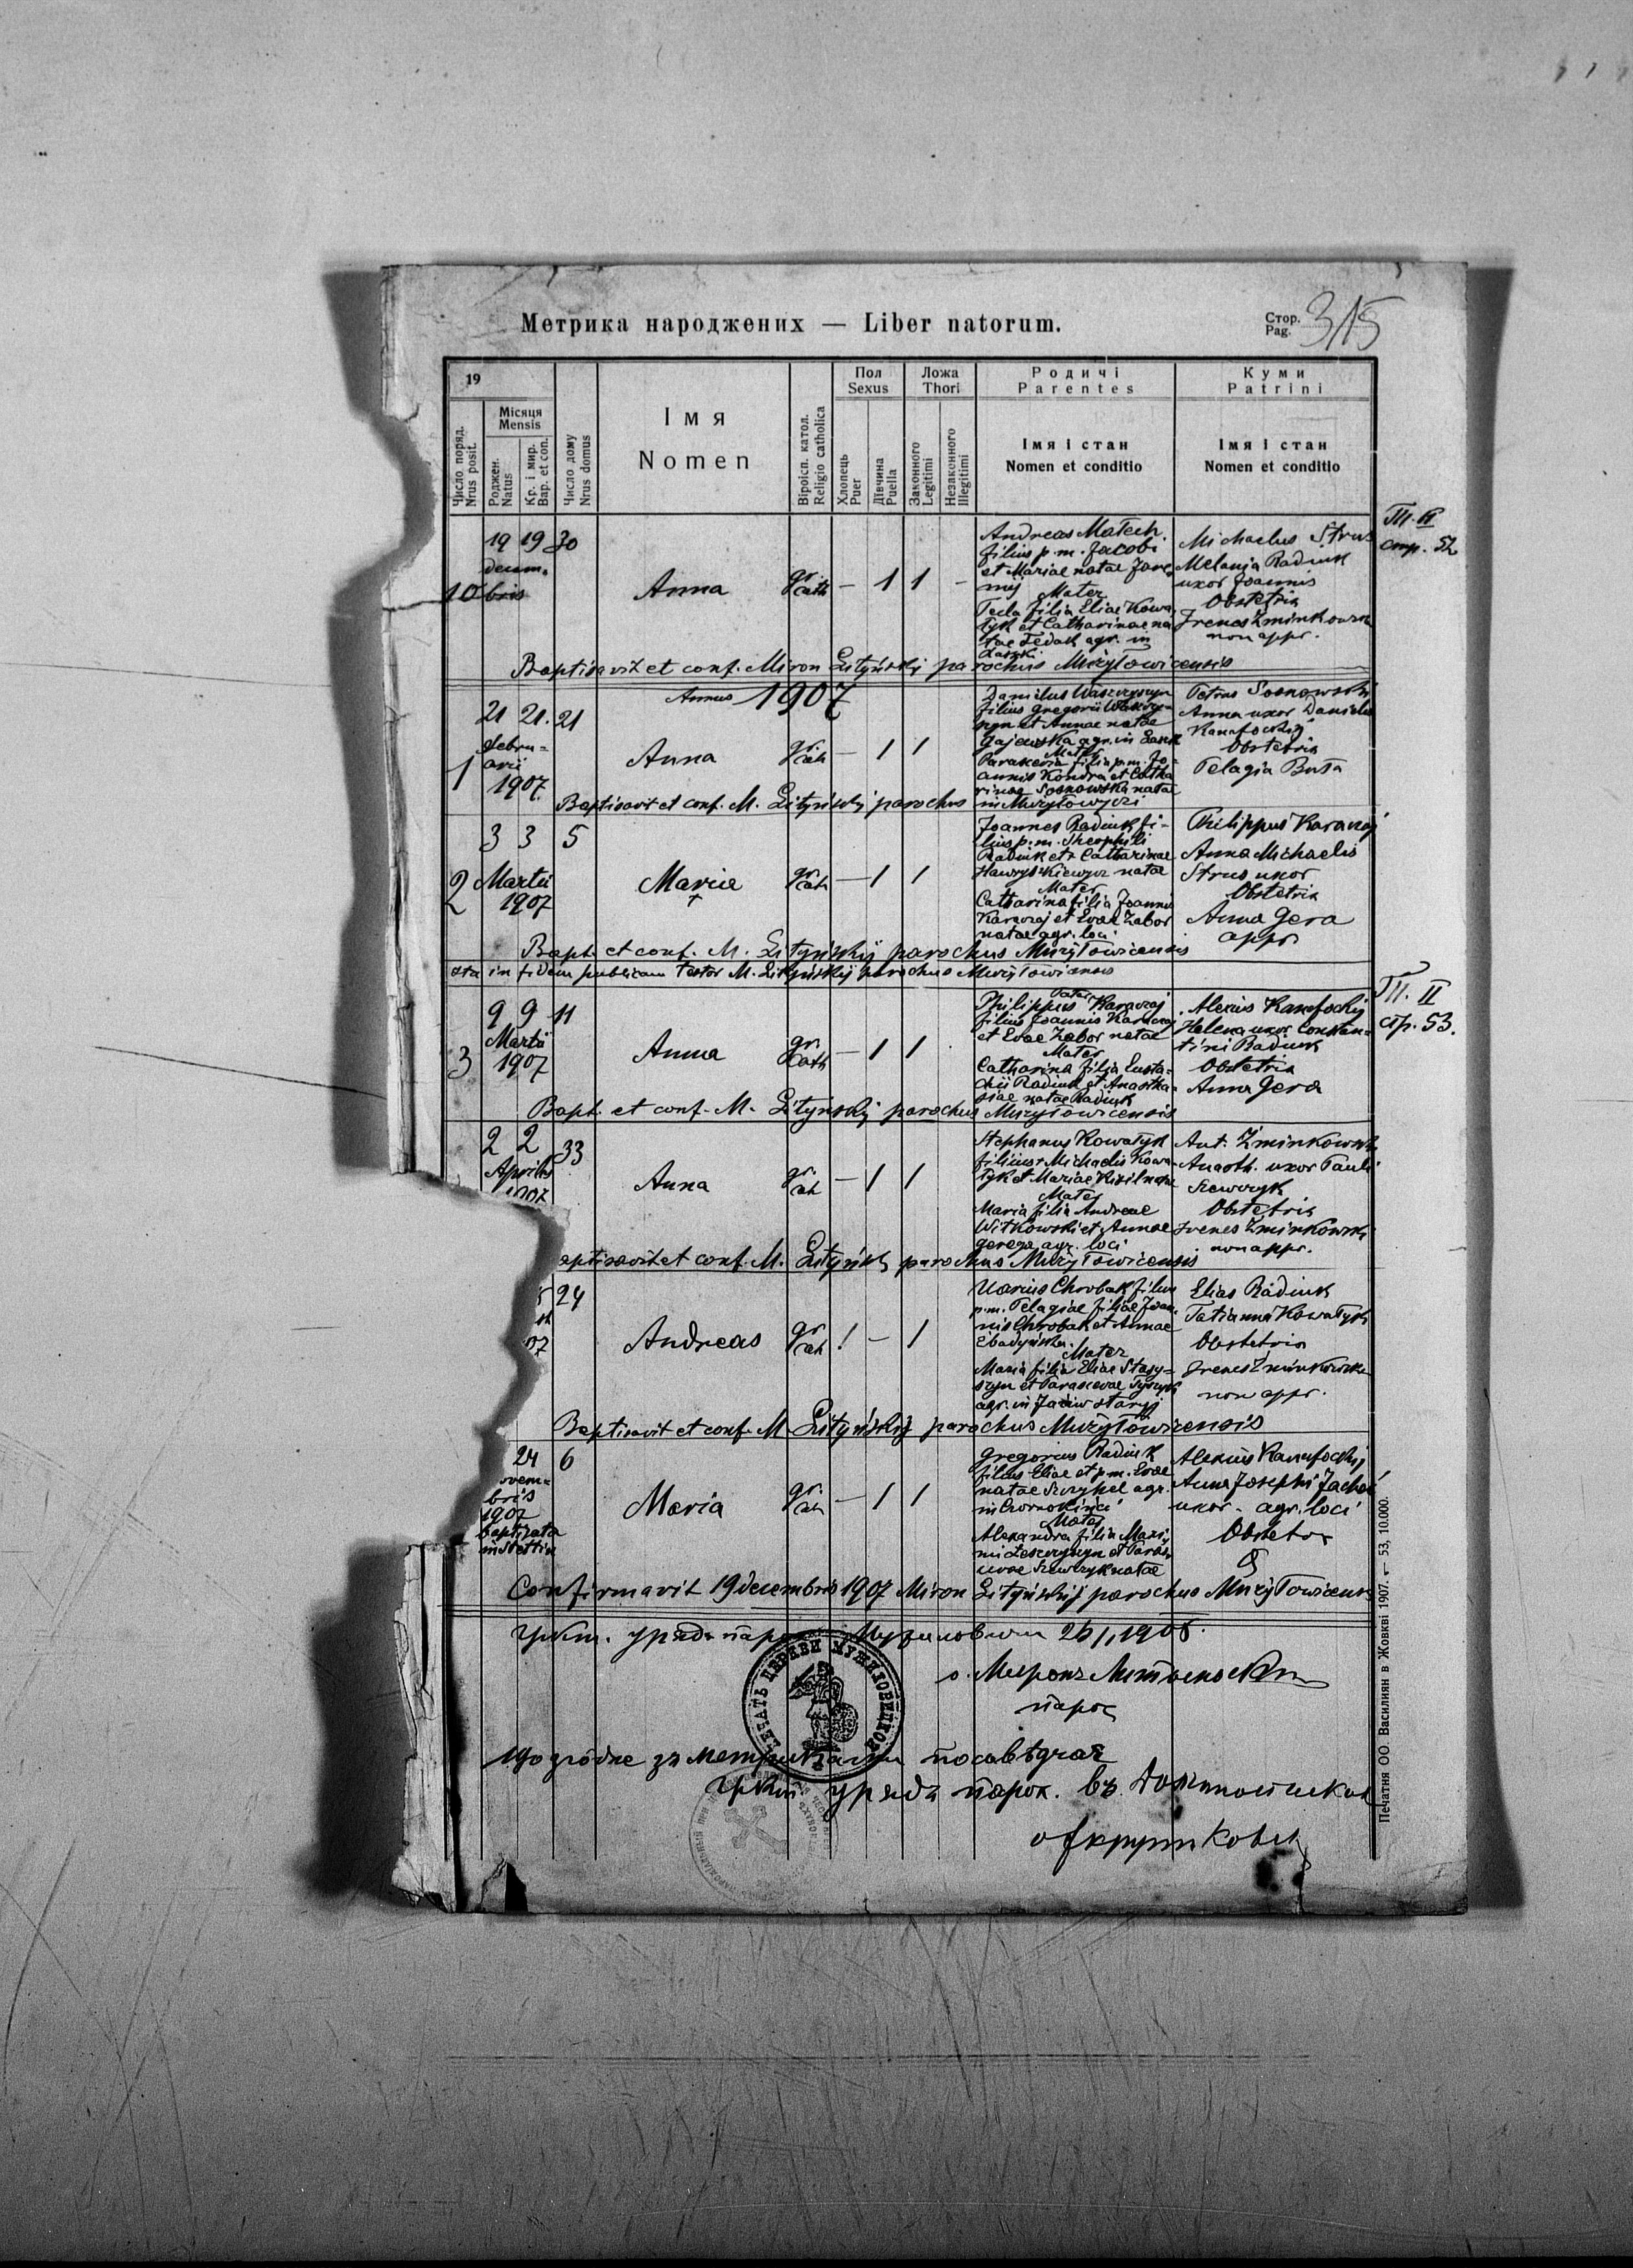 Метрика народжених — Liber natorum.
Стор.
Pag. 315
19
Число поряд.
Nrus posit.
Місяця
Mensis
Роджен.
Natus
Кр. і мир.
Bap. et con.
Число дому
Nrus domus
Імя
Nomen
Віроісп. катол.
Religio catholica
Пол
Sexus
Хлопець
Puer
Дівчина
Puella
Ложа
Thori
Законного
Legitimi
Незаконного
Illegitimi
Родичі
Parentes
Імя і стан
Nomen et conditio
Куми
Patrini
Імя і стан
Nomen et conditio
10
19 19 30
decem-
bris
Anna
gr. cath
— 1 1 —
Andreas Matech.
filius p.m. Jacobi
et Mariae natae
Mater
Tecla filia Eliae Kowa
łyk et Catharinae na
tae Fedak agr. in
Michaelus Strus
Melania Radiuk
uxor Joannis
Obstetrix
Irenes Żminkowska
non appr.
Т. II
стр. 52
Baptisavit et conf. Miron Lityńskij parochus Mużyłowicensis
Annus 1907
1
21 21. 21
Febru-
arii
1907
Anna
gr. cath
— 1 1
Danilus Waszczyszyn
filius Gregorii
szyn et Annae natae
Gajewska agr. in
Mater
Parasceva filia p.m. Jo-
annis Kondra et Catha
rinae Sosnowska natae
in Mużyłowyczi
Petrus Sosnowski
Anna uxor Danielis
Kanafockij
Obstetrix
Pelagia Buta
Baptisavit et conf. M. Lityńskij parochus
2
3 3 5
Martii
1907
Maria
+
gr. cath
— 1 1
Joannes Radiuk fi-
lius p.m. Theophili
Radiuk et Catharinae
Hawryszkiewycz natae
Mater
Catharina filia Joannis
Karaczaj et Evae Zabor
natae agr. loci
Philippus Karaczaj
Anna Michaelis
Strus uxor
Obstetrix
Anna Gera
appr
Bapt. et conf. M. Lityńskij parochus Mużyłowicensis
in fidem publicam testor M. Lityńskij parochus Mużyłowicensis
3
9 9 11
Martii
1907
Anna
gr. cath
— 1 1
Pater
Philippus Karaczaj
filius Joannis Karaczaj
et Evae Zabor natae
Mater
Catharina filia Eusta-
chii Radiuk et Anasta-
siae natae Radiuk
Alexius Kanafockij
Helena uxor Constan-
tini Radiuk
Obstetrix
Anna Gera
Т. II
стр. 53.
Bapt. et conf. M. Lityńskij parochus Mużyłowicensis
2 2 33
Aprilis
1907
Anna
gr. cath
— 1 1
Stephanus Kowałyk
filius Michaelis Kowa-
łyk et Mariae
Mater
Maria filia Andreae
Witkowski et Annae
Gerega agr. loci
Ant. Żminkowski
Anasth. uxor Pauli
Szewczyk
Obstetrix
Irenes Żminkowski
non appr.
aptisavit et conf. M. Lityńskij parochus Mużyłowicensis
24
07
Andreas
gr. cath
1 — 1
Chrobak filius
p.m. Pelagiae filiae Joan-
nis Chrobak et Annae
Mater
Maria filia Eliae Stasy-
szyn et Parascevae
agr. in Jaziw staryj
Elias Radiuk
Tatianna Kowałyk
Obstetrix
Irenes Żminkowska
non appr.
Baptisavit et conf. M. Lityńskij parochus Mużyłowicensis
24 6
ovem-
bris
1907
baptizata
in Stettin
Maria
gr. cath
— 1 1
Gregorius Radiuk
filius Eliae et p.m. Evae
natae agr.
in
Mater
Alexandra filia Maxi-
mi Leszczyszyn et Paras-
cevae Szewczyk natae
Alexius Kanafockij
Anna Josephi
uxor - agr. loci
Obstetrix
Confirmavit 19 decembris 1907 Miron Lityńskij parochus Mużyłowicensis
Гркат. уряд парох. Мужиловичи 26/1 1908.
о. Миронъ Литыньскій
парох
ПЕЧАТЬ ЦЕРКВИ МУЖИЛОВИЦКОИ
Що згідне зъ метриками посвѣдчає
Гркат. урядъ парох. въ
Печатня ОО. Василиян в Жовкві 1907. — 53, 10.000.